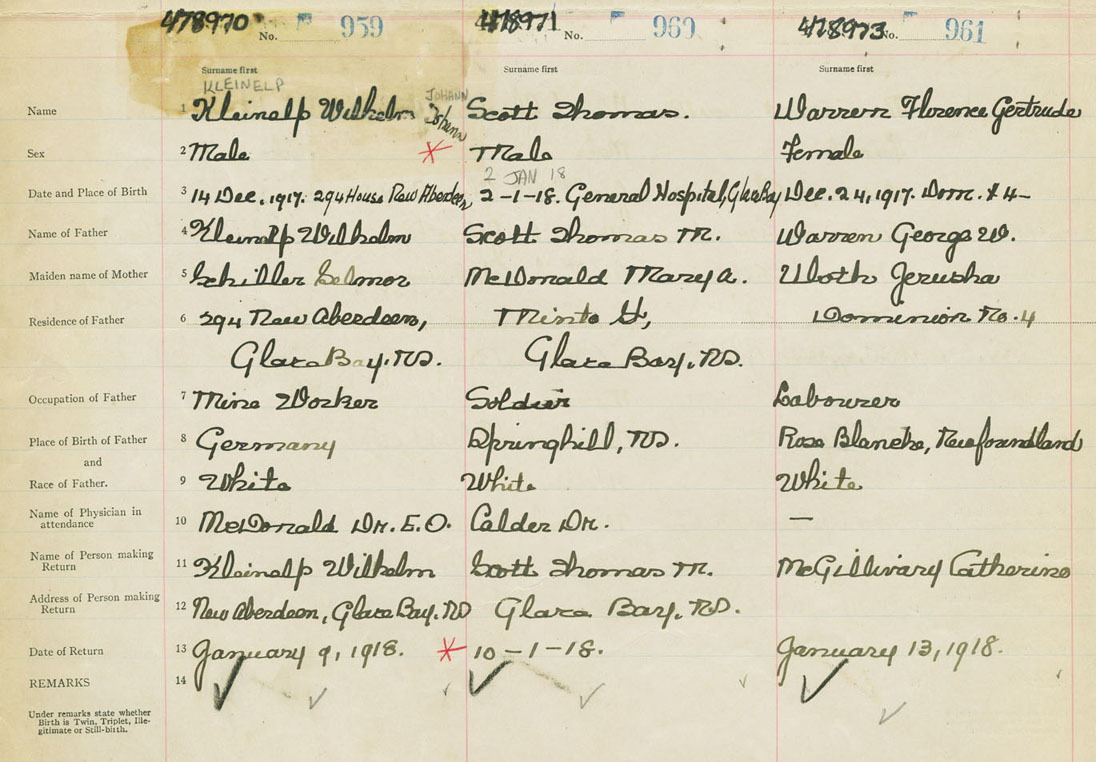 478970 No. 959 478971 No. 960 478973 No. 961
Surname first Surname first Surname first
KLEINELP
JOHANN
Name 1 Kleinelp Wilhelm Johann Scott Thomas. Warren Florence Gertrude
Sex 2 Male Male Female
2 JAN 18
Date and Place of Birth 3 14 Dec. 1917. 294 House New Aberdeen, 2-1-18. General Hospital, Glace Bay Dec. 24, 1917. Dom. # 4-
Name of Father 4 Kleinelp Wilhelm Scott Thomas M. Warren George W.
Maiden name of Mother 5 Schiller Selmor McDonald Mary A. Uloth Jerusha
Residence of Father 6 294 New Aberdeen, Minto St, Dominion No. 4
Glace Bay. N.S. Glace Bay. N.S.
Occupation of Father 7 Mine Worker Soldier Labourer
Place of Birth of Father 8 Germany Springhill, N.S. Rose Blanche, Newfoundland
and
Race of Father. 9 White White White
Name of Physician in
attendance 10 McDonald Dr. E.O. Calder Dr. —
Name of Person making
Return 11 Kleinelp Wilhelm Scott Thomas M. McGillivary Catherine
Address of Person making
Return 12 New Aberdeen, Glace Bay. N.S Glace Bay. N.S.
Date of Return 13 January 9, 1918. 10-1-18. January 13, 1918.
REMARKS 14
Under remarks state whether
Birth is Twin, Triplet, Ille-
gitimate or Still-birth.